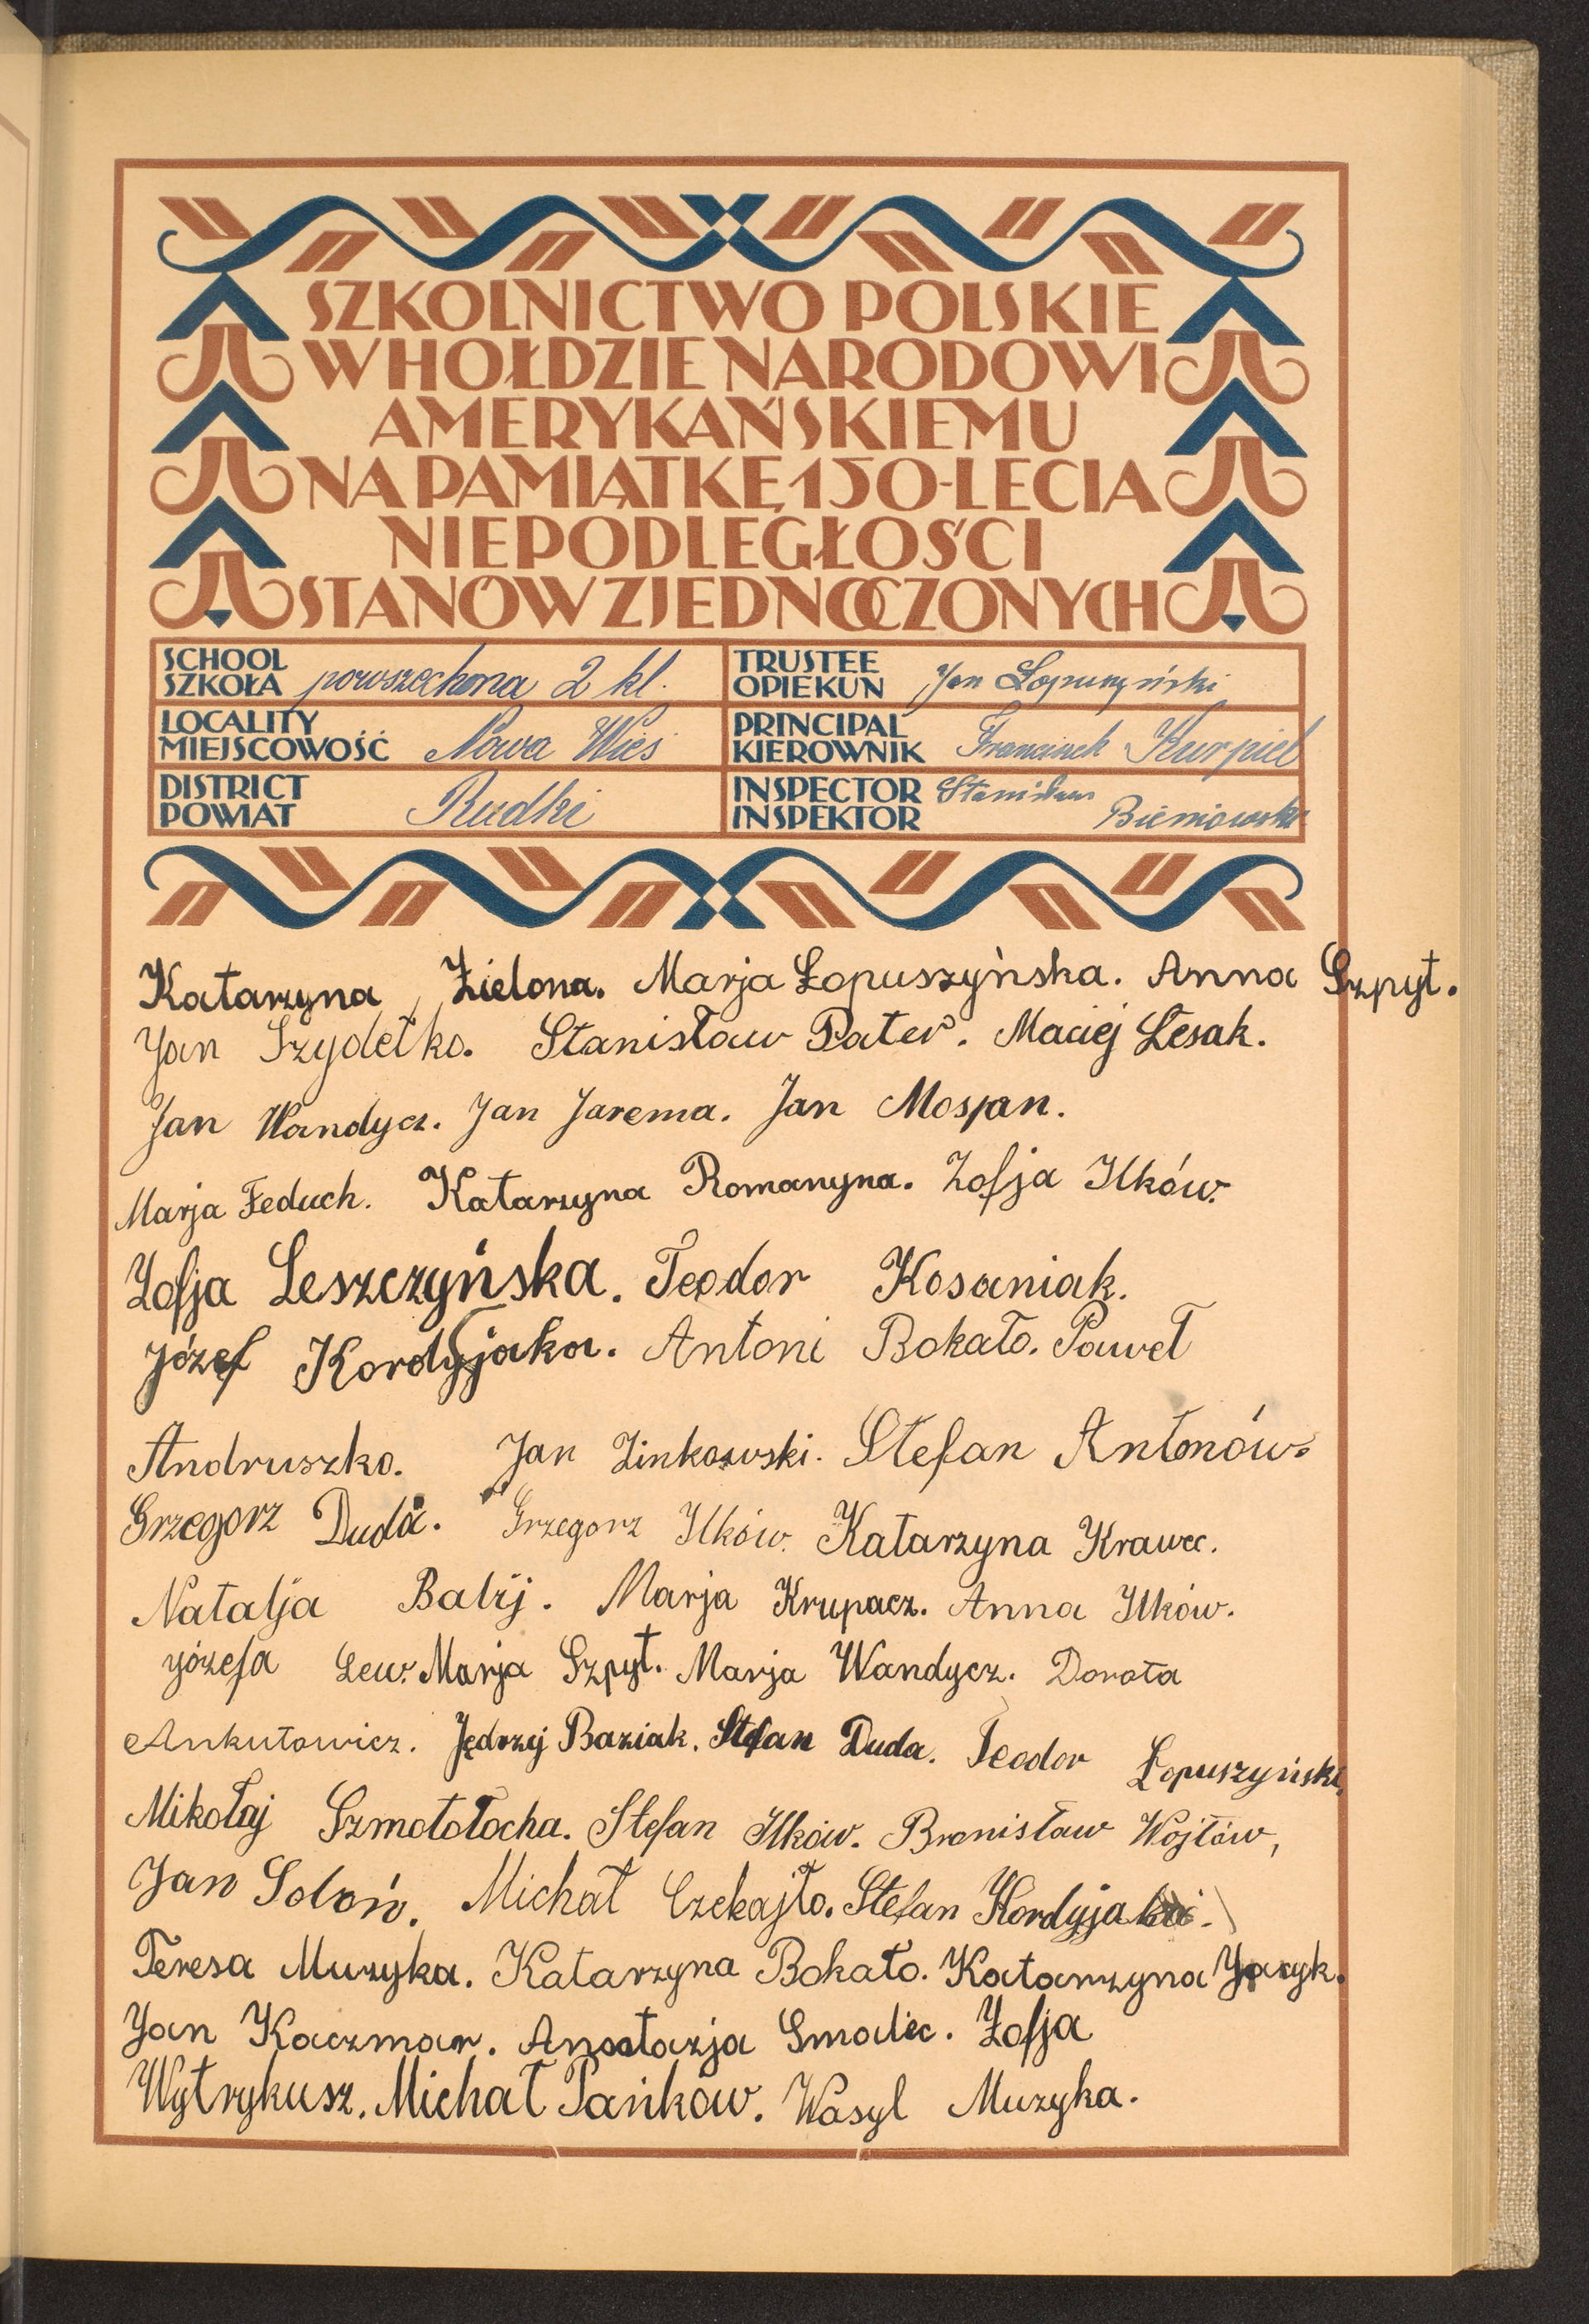 SZKOLNICTWO POLSKIE
W HOŁDZIE NARODOWI
AMERYKAŃSKIEMU
NA PAMIĄTKĘ 150-LECIA
NIEPODLEGŁOŚCI
STANÓW ZJEDNOCZONYCH
SCHOOL
SZKOŁA powszechna 2 kl.
TRUSTEE
OPIEKUN Jan Łopuszyński
LOCALITY
MIEJSCOWOŚĆ Nowa Wieś
PRINCIPAL
KIEROWNIK Franciszek Kurpiel
DISTRICT
POWIAT Rudki
INSPECTOR
INSPEKTOR Stanisław Bieniowski
Katarzyna Zielona. Marja Łopuszyńska. Anna Szpyt.
Jan Szydełko. Stanisław Pater. Maciej Lesak.
Jan Wandycz. Jan Jarema. Jan Mospan.
Marja Feduch. Katarzyna Romanyna. Zofja Ilków.
Zofja Leszczyńska. Teodor Kosaniak.
Józef Kordyjaka. Antoni Bokało. Paweł
Andruszko. Jan Zinkowski. Stefan Antonów.
Grzegorz Duda. Grzegorz Ilków. Katarzyna Krawec.
Natalja Balij. Marja Krupacz. Anna Ilków.
Józefa Lew. Marja Szpyt. Marja Wandycz. Dorota
Ankutowicz. Jędrzej Baziak. Stefan Duda. Teodor Łopuszyński,
Mikołaj Szmotołocha. Stefan Ilków. Bronisław Wojtów,
Jan Soboń. Michał Czekajło. Stefan
Teresa Muzyka. Katarzyna Bokało. Katarzyna
Jan Kaczmar. Anastazja Smalec. Zofja
Wytrykusz. Michał Pańków. Wasyl Muzyka.